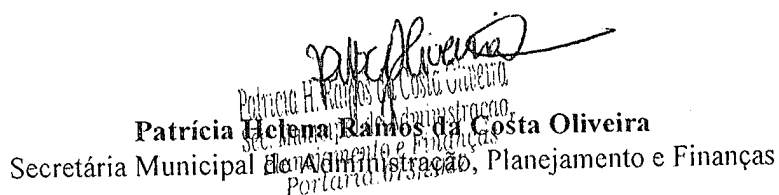 Patrícia H. Ramos da Costa Oliveira
Sec. Municipal de Administração,
Planejamento e Finanças
Portaria:
Patrícia Helena Ramos da Costa Oliveira
Secretária Municipal de Administração, Planejamento e Finanças